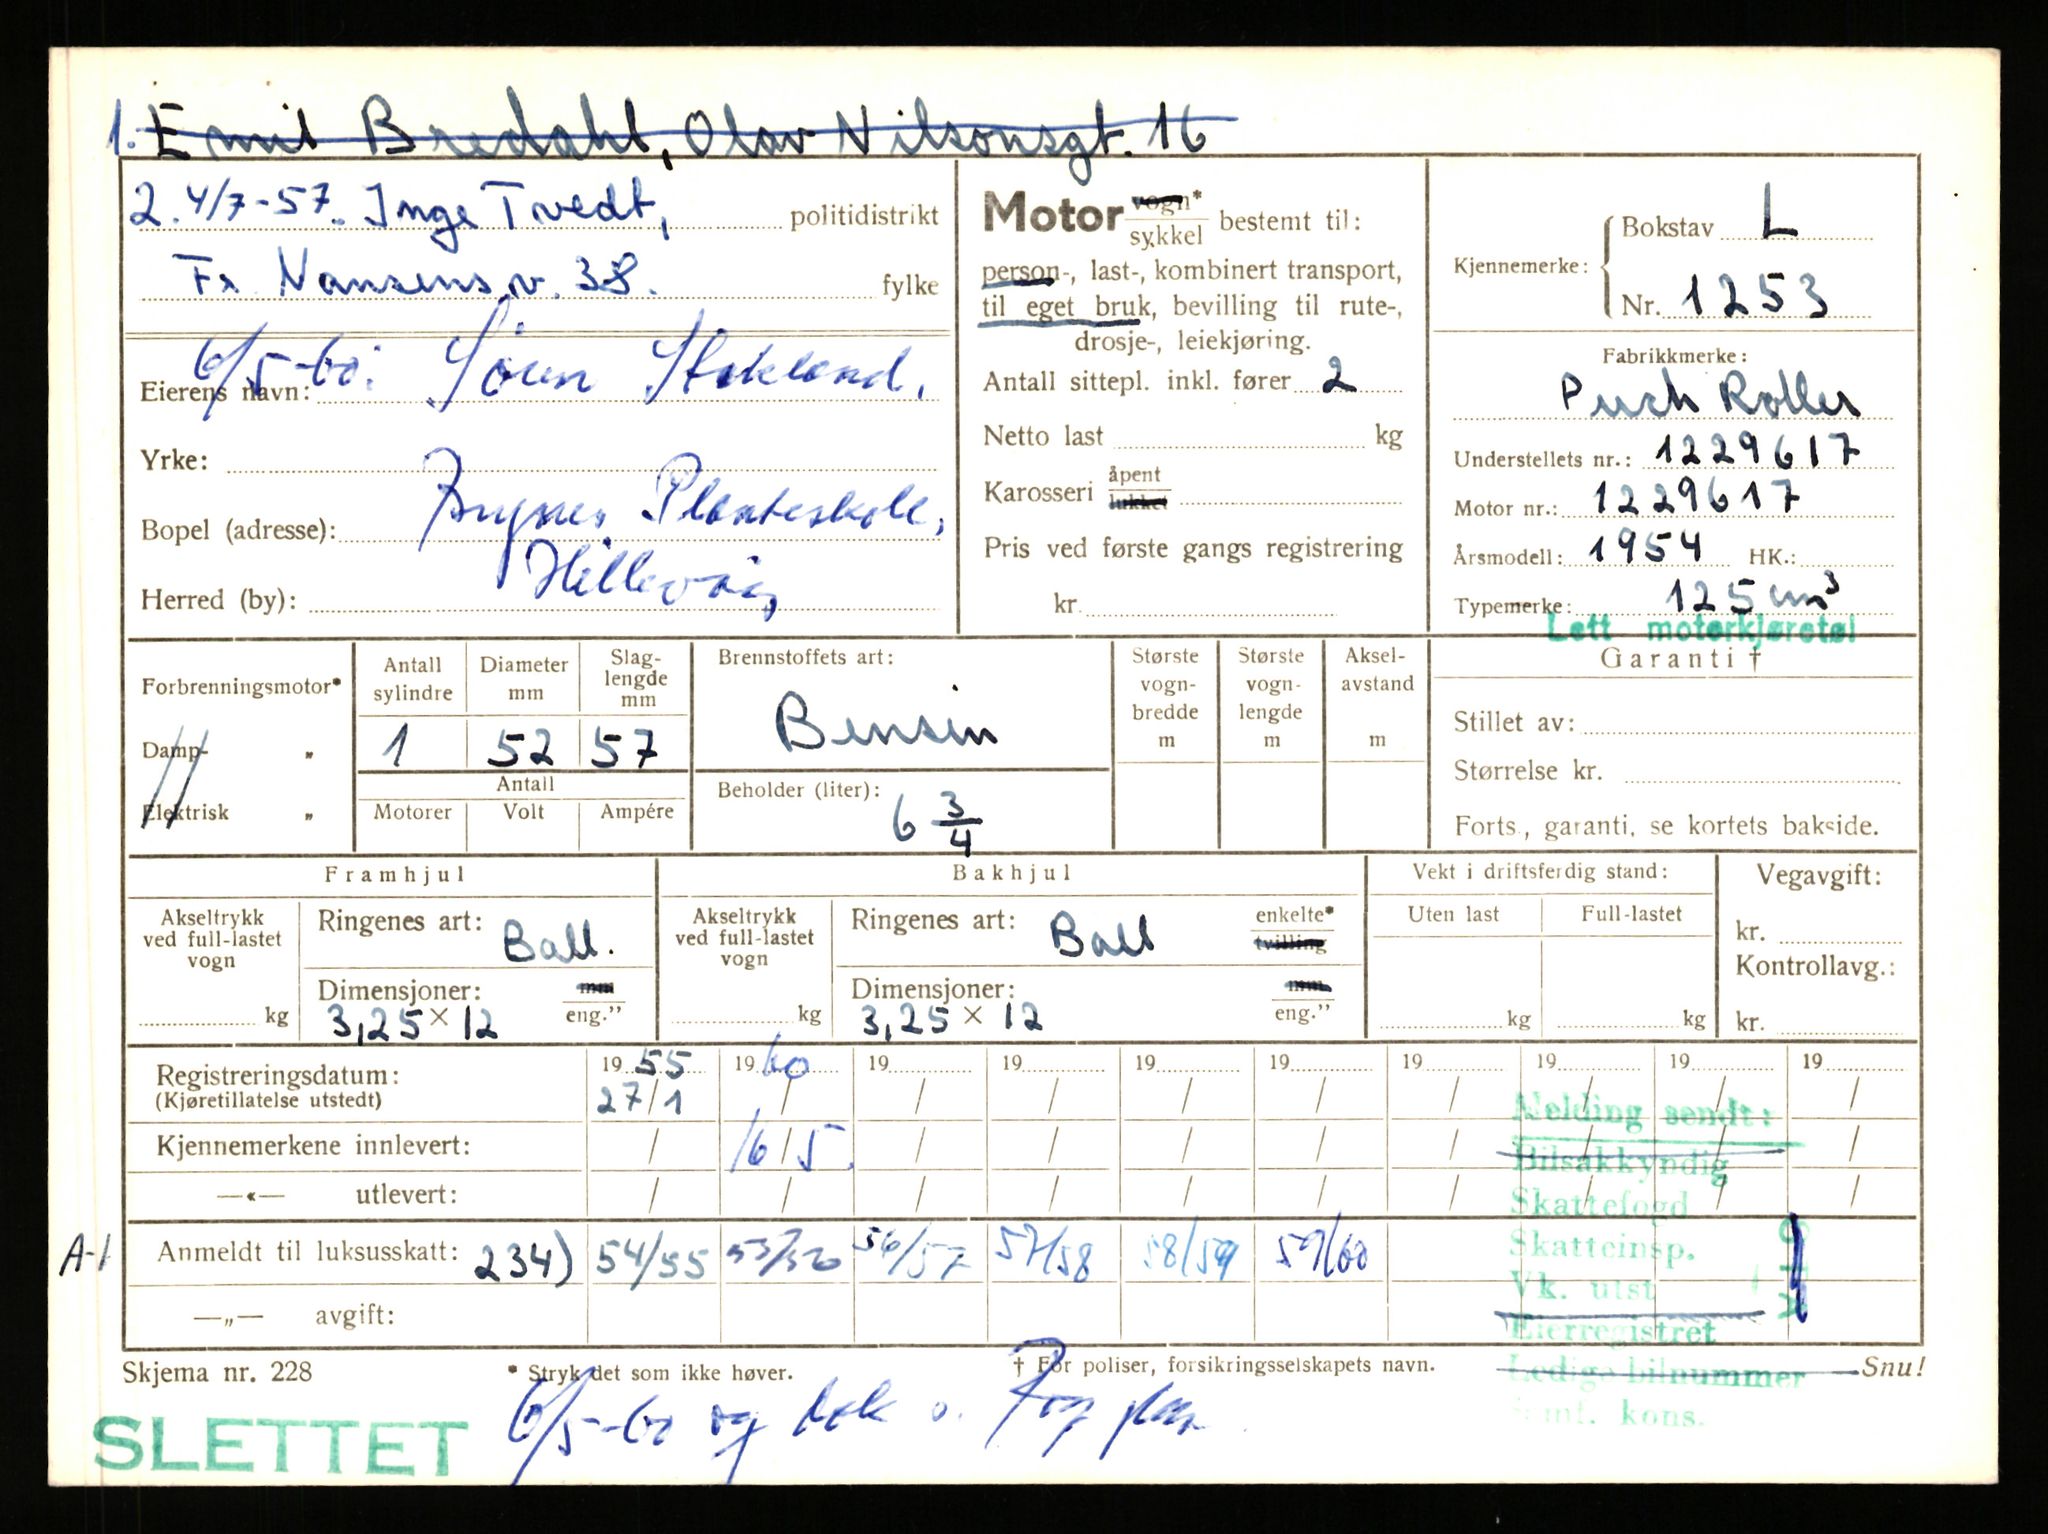 1. Emil Bredahl, Olav Nilsonsgt. 16
2. 4/7-57. Inge Tvedt, politidistrikt
Fr. Nansens v. 38. fylke
6/5-60: Sören Stokland,
Eierens navn:
Yrke:
Planteskole,
Bopel (adresse):
Hillevåg
Herred (by):
Motor vogn* sykkel bestemt til:
person-, last-, kombinert transport,
til eget bruk, bevilling til rute-,
drosje-, leiekjøring.
Antall sittepl. inkl. fører 2
Netto last kg
Karosseri åpent lukket
Pris ved første gangs registrering
kr.
Kjennemerke: Bokstav L
Nr. 1253
Fabrikkmerke:
Puch Roller
Understellets nr.: 1229617
Motor nr.: 1229617
Årsmodell: 1954 HK.:
Typemerke: 125 cm³
Lett motorkjøretøi
Forbrenningsmotor*
Damp- „
Elektrisk „
Antall sylindre
Diameter mm
Slag-lengde mm
1 52 57
Antall
Motorer Volt Ampére
Brennstoffets art:
Bensin
Beholder (liter):
6 3/4
Største vogn-bredde m
Største vogn-lengde m
Aksel-avstand m
Garanti †
Stillet av:
Størrelse kr.
Forts., garanti, se kortets bakside.
Framhjul
Akseltrykk ved full-lastet vogn
kg
Ringenes art: Ball.
Dimensjoner: mm eng."
3,25 × 12
Bakhjul
Akseltrykk ved full-lastet vogn
kg
Ringenes art: Ball enkelte* tvilling
Dimensjoner: mm eng."
3,25 × 12
Vekt i driftsferdig stand:
Uten last Full-lastet
kg kg
Vegavgift:
kr.
Kontrollavg.:
kr.
Registreringsdatum: 19 55 19 60 19 19 19 19 19 19 19 19
(Kjøretillatelse utstedt) 27/1 / / / / / / / / /
Kjennemerkene innlevert: / 16/5. / / / / / / / /
—«— utlevert: / / / / / / / / / /
A-1 Anmeldt til luksusskatt: 234) 54/55 56/57 57/58 58/59 59/60
—„— avgift:
Melding sendt:
Bilsakkyndig
Skattefogd
Skatteinsp.
Vk. utst
Eierregistret
Ledige bilnummer
kons.
Skjema nr. 228 * Stryk det som ikke høver. † For poliser, forsikringsselskapets navn. Snu!
6/5-60 og
SLETTET